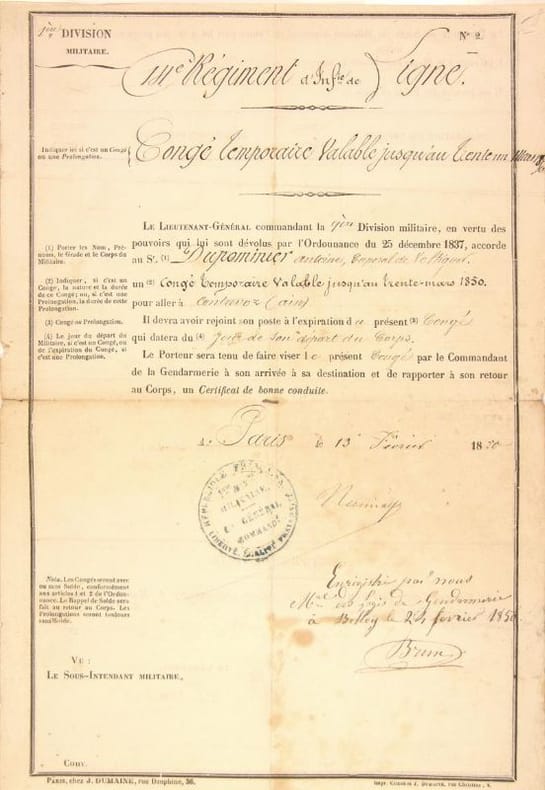 1ère DIVISION
MILITAIRE.
N° 2
Régiment d'Infie de Ligne.
Indiquer ici si c'est un Congé
ou une Prolongation.
Congé temporaire Valable jusqu'au trente un Mars
LE LIEUTENANT-GÉNÉRAL commandant la 1ère Division militaire, en vertu des
pouvoirs qui lui sont dévolus par l'Ordonnance du 25 décembre 1837, accorde
au Sr. (1) antoine, Caporal de
un (2) Congé temporaire Valable jusqu'au trente-mars 1850.
pour aller à (ain)
Il devra avoir rejoint son poste à l'expiration du présent (3) Congé
qui datera du (4) Jour de son départ du Corps.
Le Porteur sera tenu de faire viser le présent Congé par le Commandant
de la Gendarmerie à son arrivée à sa destination et de rapporter à son retour
au Corps, un Certificat de bonne conduite.
(1) Porter les Nom, Pré-
noms, le Grade et le Corps du
Militaire.
(2) Indiquer, si c'est un
Congé, la nature et la durée
de ce Congé; ou, si c'est une
Prolongation, la durée de cette
Prolongation.
(3) Congé ou Prolongation.
(4) Le jour du départ du
Militaire, si c'est un Congé, ou
de l'expiration du Congé, si
c'est une Prolongation.
A Paris le 15 Février 1850
RÉPUBLIQUE FRANÇAISE
MILITAIRE.
LE GÉNÉRAL
COMMANDT
LIBERTÉ, ÉGALITÉ, FRATERNITÉ
Enregistré par nous
Mal des logis de Gendarmerie
à Belley le 24 fevrier 1850
Brun
Nota. Les Congés seront avec
ou sans Solde, conformément
aux articles 1 et 2 de l'Ordon-
nance. Le Rappel de Solde sera
fait au retour au Corps. Les
Prolongations seront toujours
sans Solde.
VU :
LE SOUS-INTENDANT MILITAIRE,
Conv.
PARIS, chez J. DUMAINE, rue Dauphine, 36.